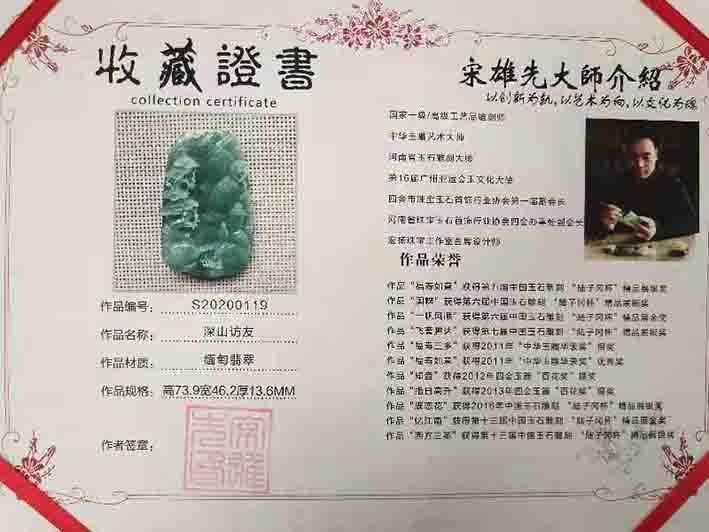 收藏證書
collection certificate
作品编号: S20200119
作品名称: 深山访友
作品材质: 缅甸翡翠
作品规格: 高73.9宽46.2厚13.6MM
作者签章:
宋雄先大師介紹
以创新为轨,以艺术为向,以文化为魂
国家一级/高级工艺品雕刻师
中华玉雕艺术大师
河南省玉石雕刻大师
第16届广州亚运会玉文化大使
四会市珠宝玉石首饰行业协会第一届副会长
河南省珠宝玉石首饰行业协会四会办事处副会长
珠宝工作室首席设计师
作品荣誉
作品“福寿如意”获得第九届中国玉石雕刻 “陆子冈杯” 精品银奖
作品“国粹”获得第六届中国玉石雕刻 “陆子冈杯” 精品银奖
作品“一帆风顺”获得第六届中国玉石雕刻 “陆子冈杯” 精品金奖
作品“飞黄腾达”获得第七届中国玉石雕刻 “陆子冈杯” 精品奖
作品“福寿三多”获得2011年“中华玉雕华表奖”银奖
作品“福寿如意”获得2011年“中华玉雕华表奖”优秀奖
作品“知音”获得2012年四会玉器“百花奖”银奖
作品“指日高升”获得2013年四会玉器“百花奖”铜奖
作品“莲花”获得2016年中国玉石雕刻 “陆子冈杯” 精品银奖
作品“忆江南”获得第十三届中国玉石雕刻 “陆子冈杯” 精品金奖
作品“西方三圣”获得第十三届中国玉石雕刻 “陆子冈杯” 精品银奖